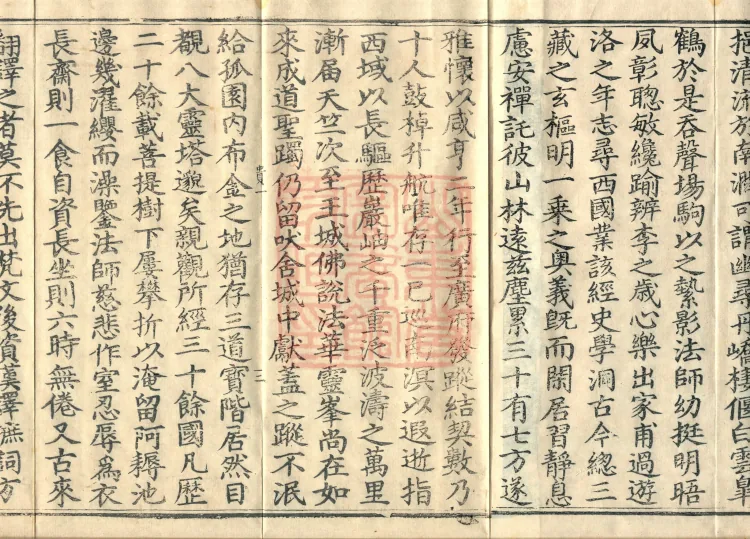 挹清流於南澗可謂幽尋丹嶠棲偃白雲皐
鶴於是吞聲場駒以之縶影法師幼挺明晤
夙彰聰敏纔踰辨李之歲心樂出家甫過遊
洛之年志尋西國業該經史學洞古今總三
藏之玄樞明一乘之奧義既而閑居習靜息
慮安禪託彼山林遠茲塵累三十有七方遂
雅懷以咸亨二年行至廣府發蹤結契數乃
十人鼓棹升航唯存一己巡南溟以遐逝指
西域以長驅歷巖岫之千重泛波濤之萬里
漸届天竺次至王城佛說法華靈峯尚在如
來成道聖躅仍留吠舍城中獻蓋之蹤不泯
給孤園內布金之地猶存三道寶階居然目
覩八大靈塔邈矣親觀所經三十餘國凡歷
二十餘載菩提樹下屢攀折以淹留阿耨池
邊幾濯纓而澡鑒法師慈悲作室忍辱為衣
長齋則一食自資長坐則六時無倦又古來
翻譯之者莫不先出梵文後資漢譯摭詞方